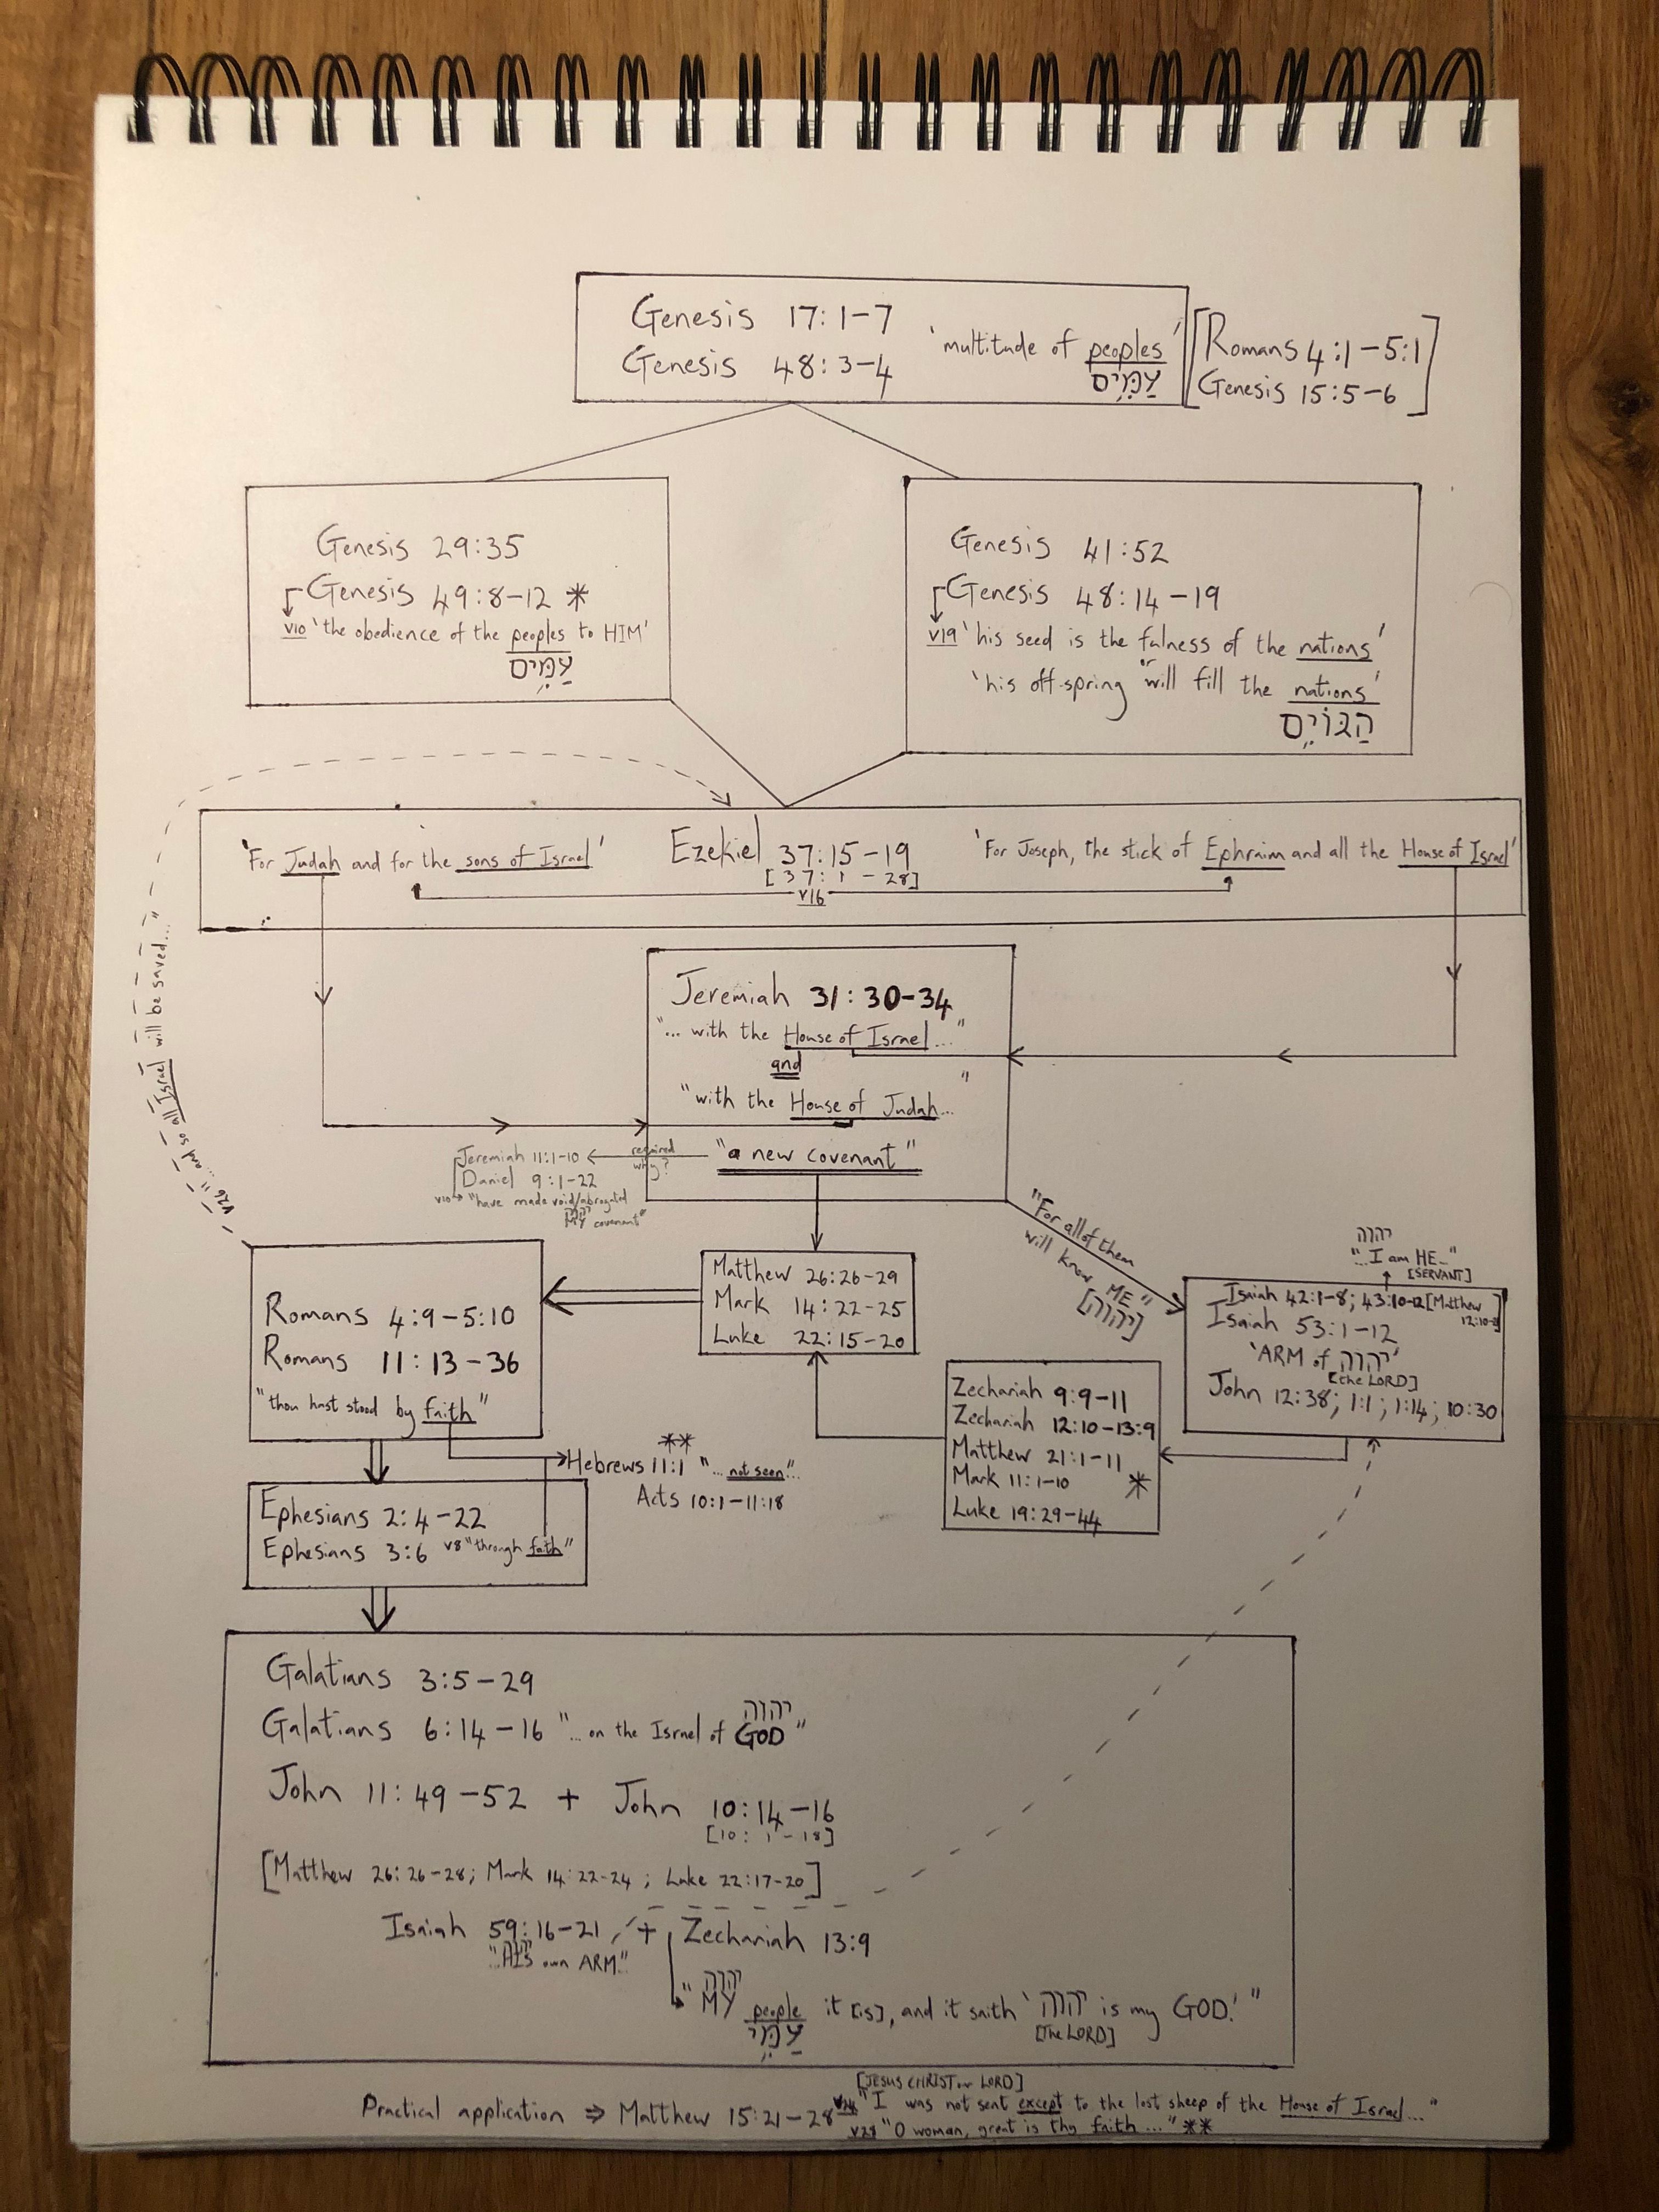 Genesis 17:1-7
Genesis 48:3-4
'multitude of peoples'
עַמִּים
[Romans 4:1-5:1
Genesis 15:5-6]
Genesis 29:35
Genesis 49:8-12 *
v10 'the obedience of the peoples to HIM'
עַמִּים
Genesis 41:52
Genesis 48:14-19
v19 'his seed is the fulness of the nations'
or
'his off-spring will fill the nations'
הַגּוֹיִם
'For Judah and for the sons of Israel'
Ezekiel 37:15-19
[37:1-28]
v16
'For Joseph, the stick of Ephraim and all the House of Israel'
v26 "...and so all Israel will be saved..."
Jeremiah 31:30-34
"... with the House of Israel..."
and
"with the House of Judah..."
"a new covenant"
required
why?
Jeremiah 11:1-10
Daniel 9:1-22
v10 "have made void/abrogated
יהוה
MY covenant"
"For all of them
will know ME"
[יהוה]
יהוה
"...I am HE..."
[SERVANT]
Isaiah 42:1-8; 43:10-12 [Matthew
Isaiah 53:1-12
'ARM of יהוה'
[the LORD]
John 12:38; 1:1; 1:14; 10:30
Matthew 26:26-29
Mark 14:22-25
Luke 22:15-20
Romans 4:9-5:10
Romans 11:13-36
"thou hast stood by faith"
Zechariah 9:9-11
Zechariah 12:10-13:9
Matthew 21:1-11
Mark 11:1-10 *
Luke 19:29-44
**
Hebrews 11:1 "...not seen"...
Acts 10:1-11:18
Ephesians 2:4-22
Ephesians 3:6 v8 "through faith"
Galatians 3:5-29
יהוה
Galatians 6:14-16 "...on the Israel of GOD"
John 11:49-52 + John 10:14-16
[10:1-18]
[Matthew 26:26-28; Mark 14:22-24; Luke 22:17-20]
Isaiah 59:16-21 + Zechariah 13:9
יהוה
"...HIS own ARM"...
יהוה
"MY people it [is], and it saith 'יהוה is my GOD.'"
עַמִּי
[the LORD]
[JESUS CHRIST our LORD]
Practical application ⇒ Matthew 15:21-28 v24 "I was not sent except to the lost sheep of the House of Israel..."
v28 "O woman, great is thy faith..." **